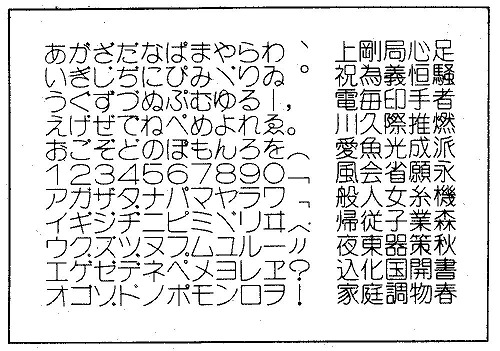 あがざだなぱまやらわ゛ 上剛局心足
いきじぢにぴみヾりゐ゜ 祝為義恒騒
うぐずづぬぷむゆる｜, 電毎印手者
えげぜでねぺめよれゑ。 川久際推燃
おごぞどのぽもんろを︵ 愛魚光成派
1234567890︶ 風会省願永
アガザダナパマヤラワ「 般人女糸機
イギジヂニピミヽリヰ 帰従子業森
ウグズヅヌプムユルー〃 夜東器策秋
エゲゼデネペメヨレヱ? 込化国開書
オゴゾドノポモンロヲ! 家庭調物春